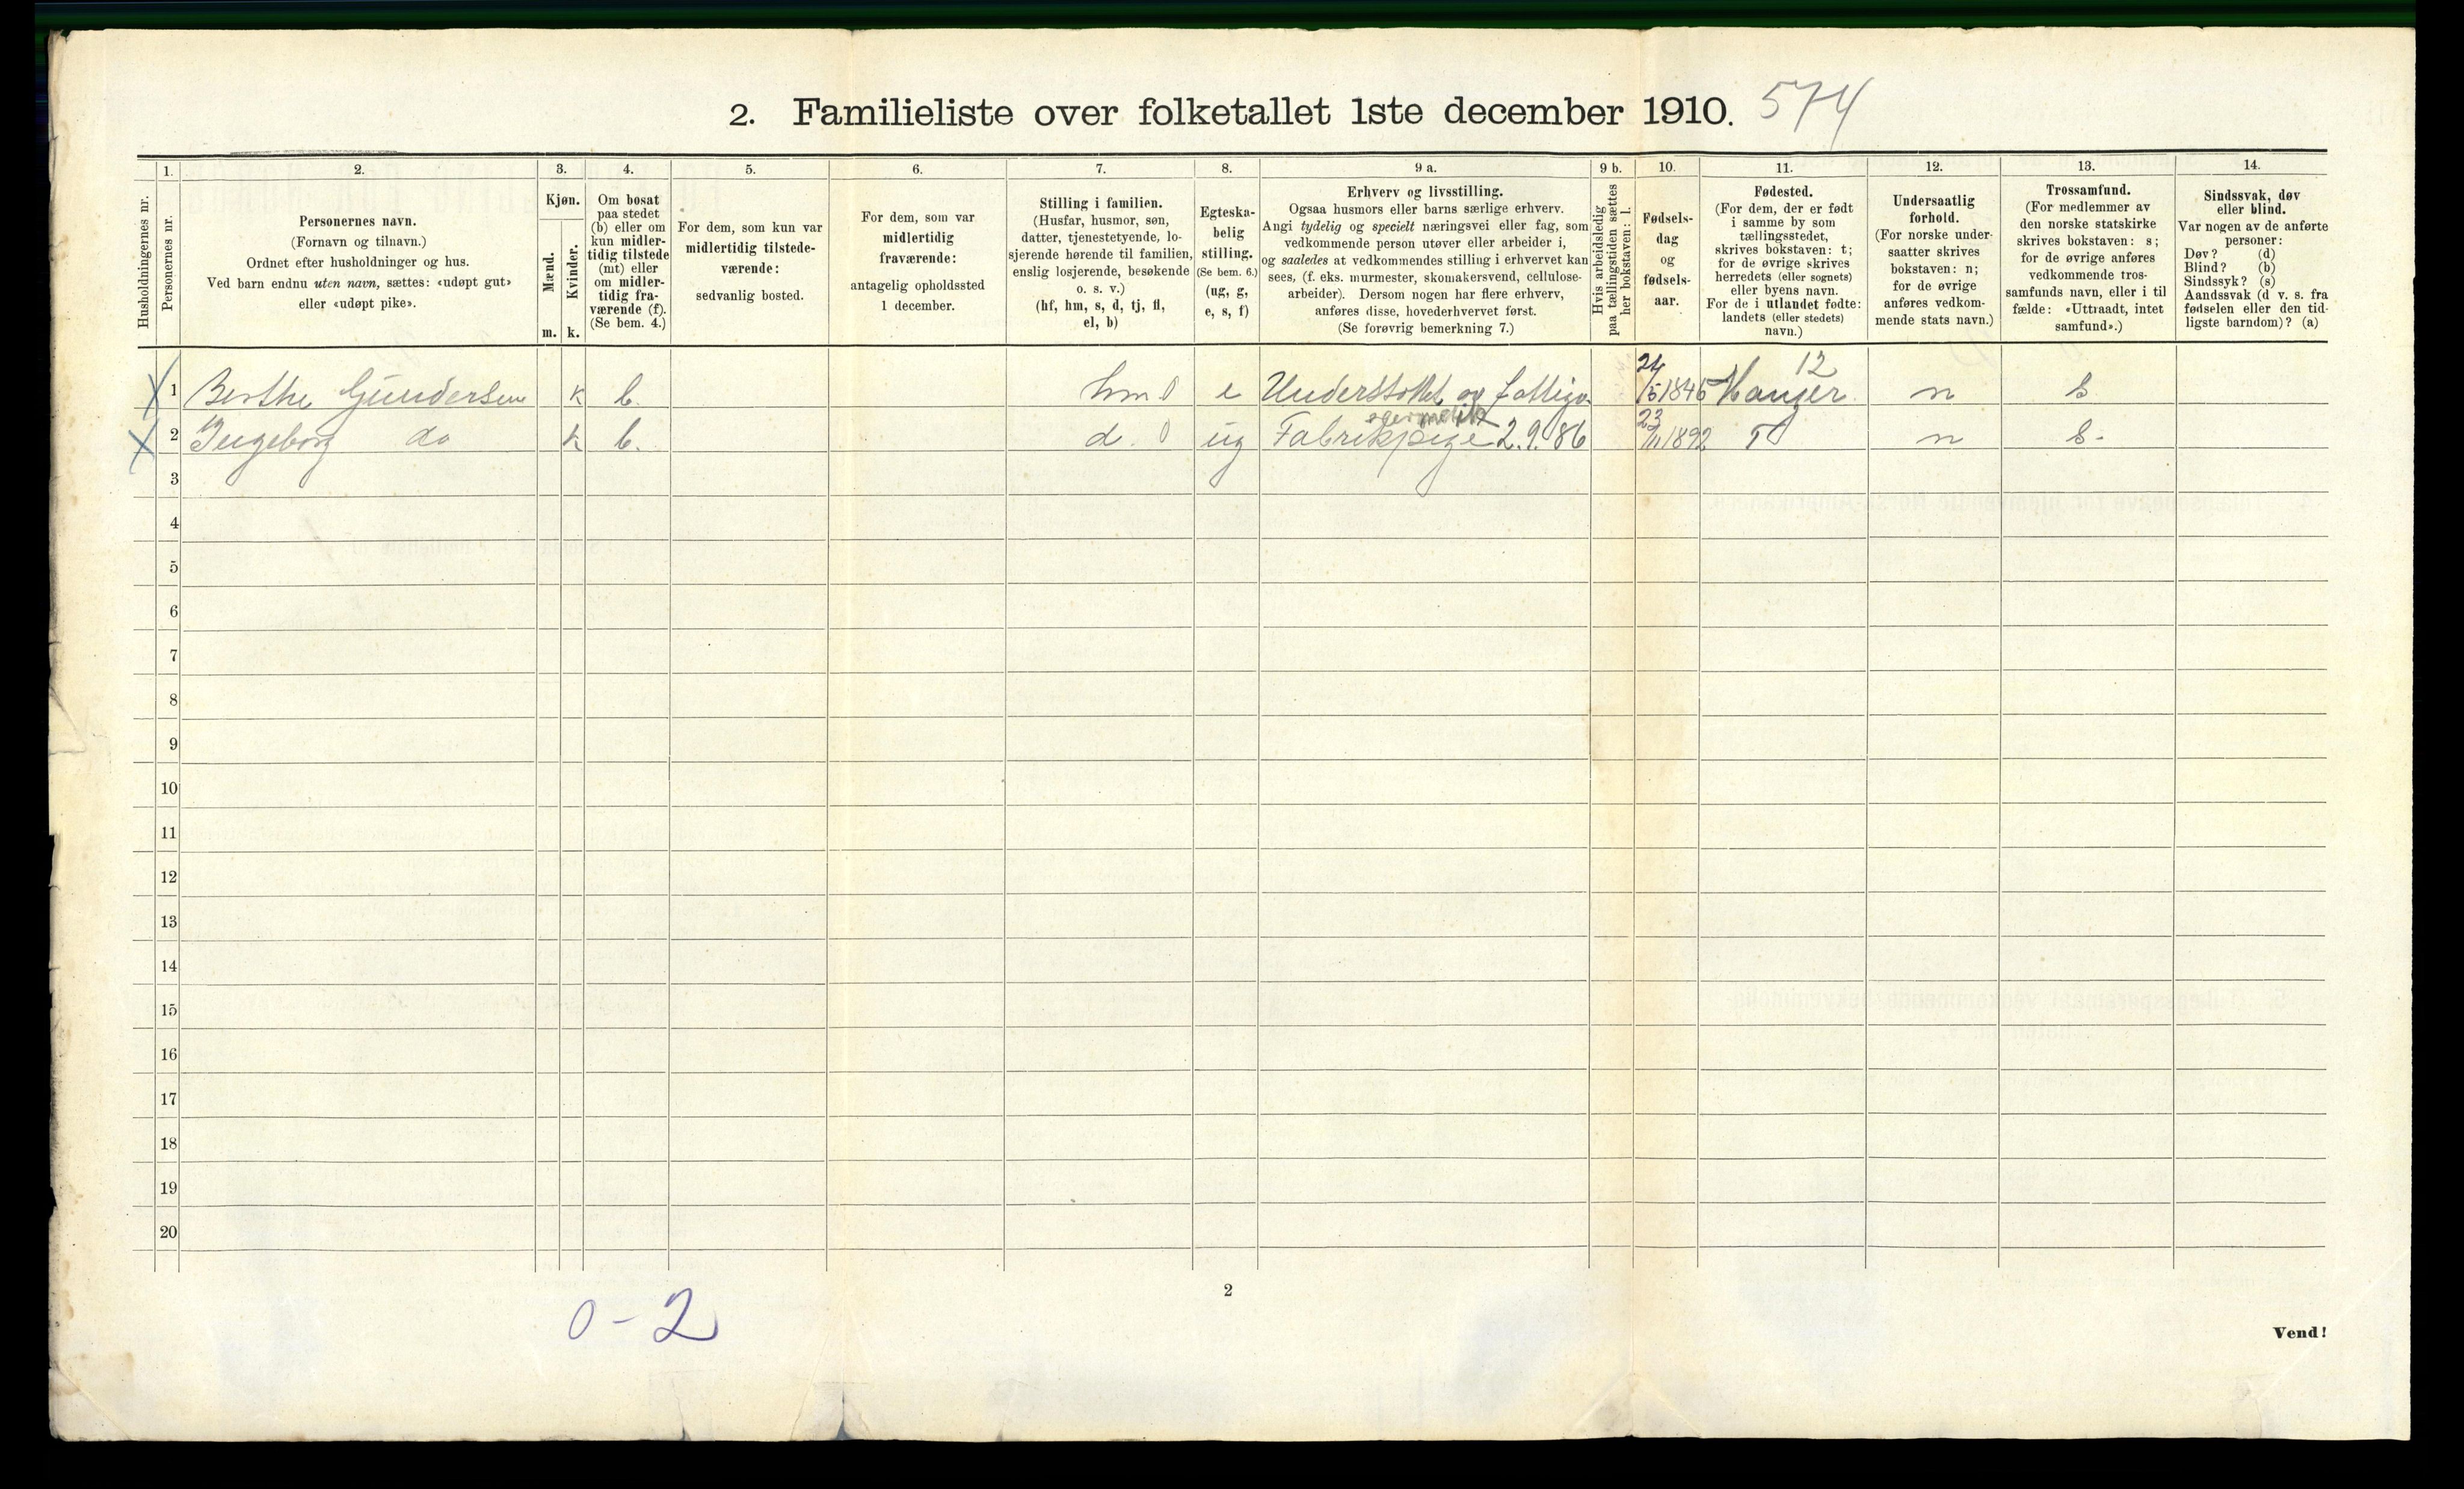 2. Familieliste over folketallet 1ste december 1910. 574
Husholdningernes nr.
1.
Personernes nr.
2.
Personernes navn.
(Fornavn og tilnavn.)
Ordnet efter husholdninger og hus.
Ved barn endnu uten navn, sættes: «udøpt gut»
eller «udøpt pike».
3.
Kjøn.
Mænd.
Kvinder.
m. k.
4.
Om bosat
paa stedet
(b) eller om
kun midler-
tidig tilstede
(mt) eller
om midler-
tidig fra-
værende (f).
(Se bem. 4.)
5.
For dem, som kun var
midlertidig tilstede-
værende:
sedvanlig bosted.
6.
For dem, som var
midlertidig
fraværende:
antagelig opholdssted
1 december.
7.
Stilling i familien.
(Husfar, husmor, søn,
datter, tjenestetyende, lo-
sjerende hørende til familien,
enslig losjerende, besøkende
o. s. v.)
(hf, hm, s, d, tj, fl,
el, b)
8.
Egteska-
belig
stilling.
(Se bem. 6.)
(ug, g,
e, s, f)
9 a.
Erhverv og livsstilling.
Ogsaa husmors eller barns særlige erhverv.
Angi tydelig og specielt næringsvei eller fag, som
vedkommende person utøver eller arbeider i,
og saaledes at vedkommendes stilling i erhvervet kan
sees, (f. eks. murmester, skomakersvend, cellulose-
arbeider). Dersom nogen har flere erhverv,
anføres disse, hovederhvervet først.
(Se forøvrig bemerkning 7.)
9 b.
Hvis arbeidsledig
paa tællingstiden sættes
her bokstaven: l.
10.
Fødsels-
dag
og
fødsels-
aar.
11.
Fødested.
(For dem, der er født
i samme by som
tællingsstedet,
skrives bokstaven: t;
for de øvrige skrives
herredets (eller sognets)
eller byens navn.
For de i utlandet fødte:
landets (eller stedets)
navn.)
12.
Undersaatlig
forhold.
(For norske under-
saatter skrives
bokstaven: n;
for de øvrige
anføres vedkom-
mende stats navn.)
13.
Trossamfund.
(For medlemmer av
den norske statskirke
skrives bokstaven: s;
for de øvrige anføres
vedkommende tros-
samfunds navn, eller i til
fælde: «Uttraadt, intet
samfund».)
14.
Sindssvak, døv
eller blind.
Var nogen av de anførte
personer:
Døv? (d)
Blind? (b)
Sindssyk? (s)
Aandssvak (d v. s. fra
fødselen eller den tid-
ligste barndom)? (a)
12
X 1 Berthe Gundersen k b. hm 0 e Understottet og fattigv. 24/5 1845 Manger n S
X 2 Ingeborg do k b. d. 0 ug Fabrikpige 2.9.86 23/11 1892 T n S.
3
4
5
6
7
8
9
10
11
12
13
14
15
16
17
18
19
20
2
0-2
Vend!